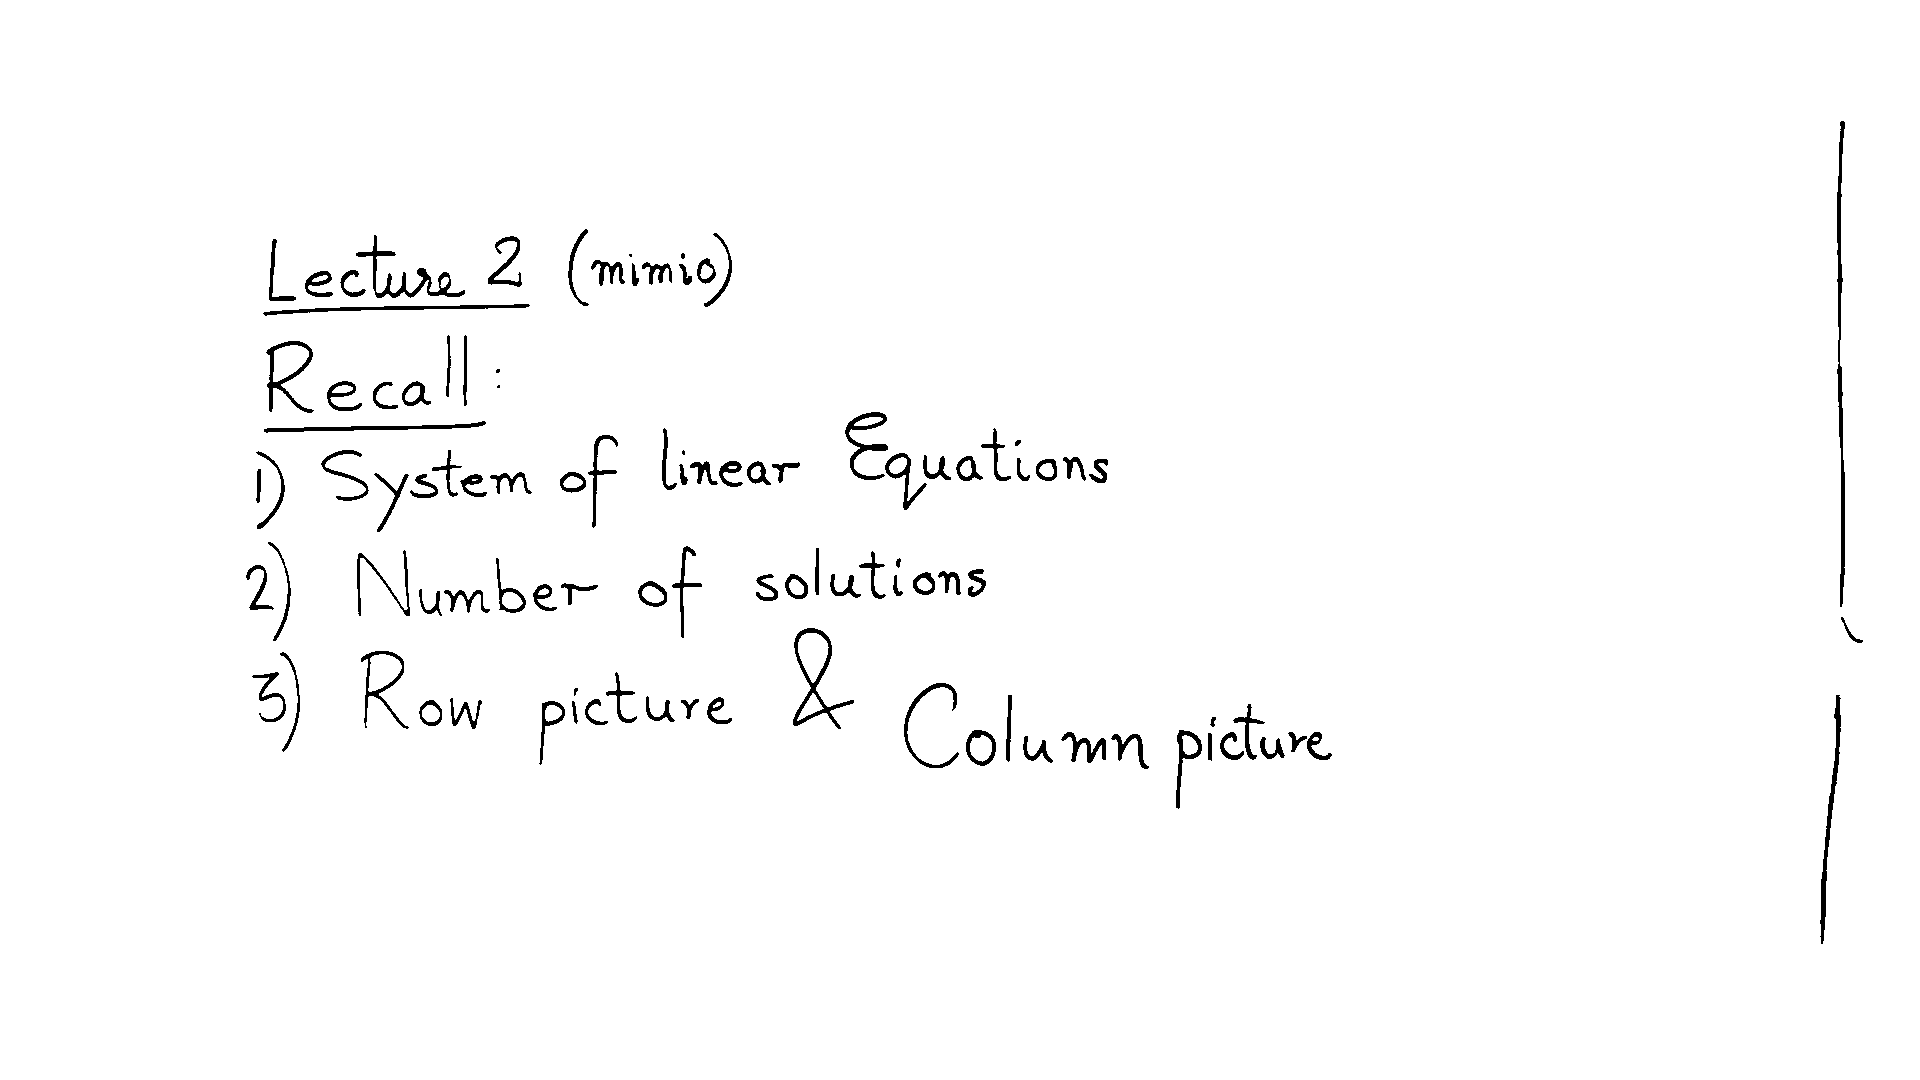 Lecture 2 (mimio)
Recall:
1) System of linear Equations
2) Number of solutions
3) Row picture & Column picture